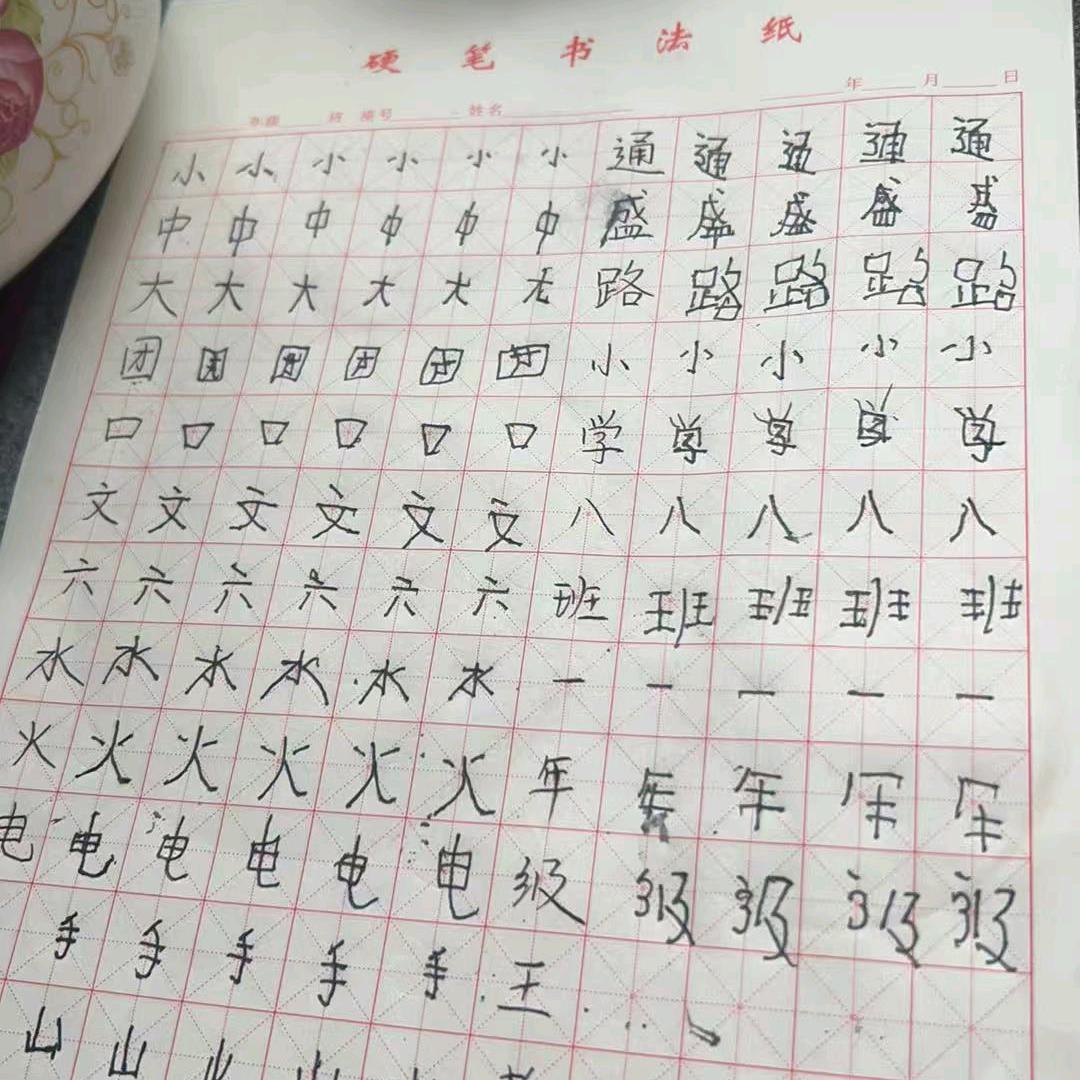 硬笔书法纸
年级 班 座号 姓名 年 月 日
小小小小小小通通通通通
中中中中中中盛盛盛盛盛
大大大大大路路路路路
团团团团团团小小小小小
口口口口口口学学学学学
文文文文文文八八八八八
六六六六六六班班班班班
水水水水水水一一一一一
火火火火火火年年年年年
电电电电电电级级级级级
手手手手手王
山山